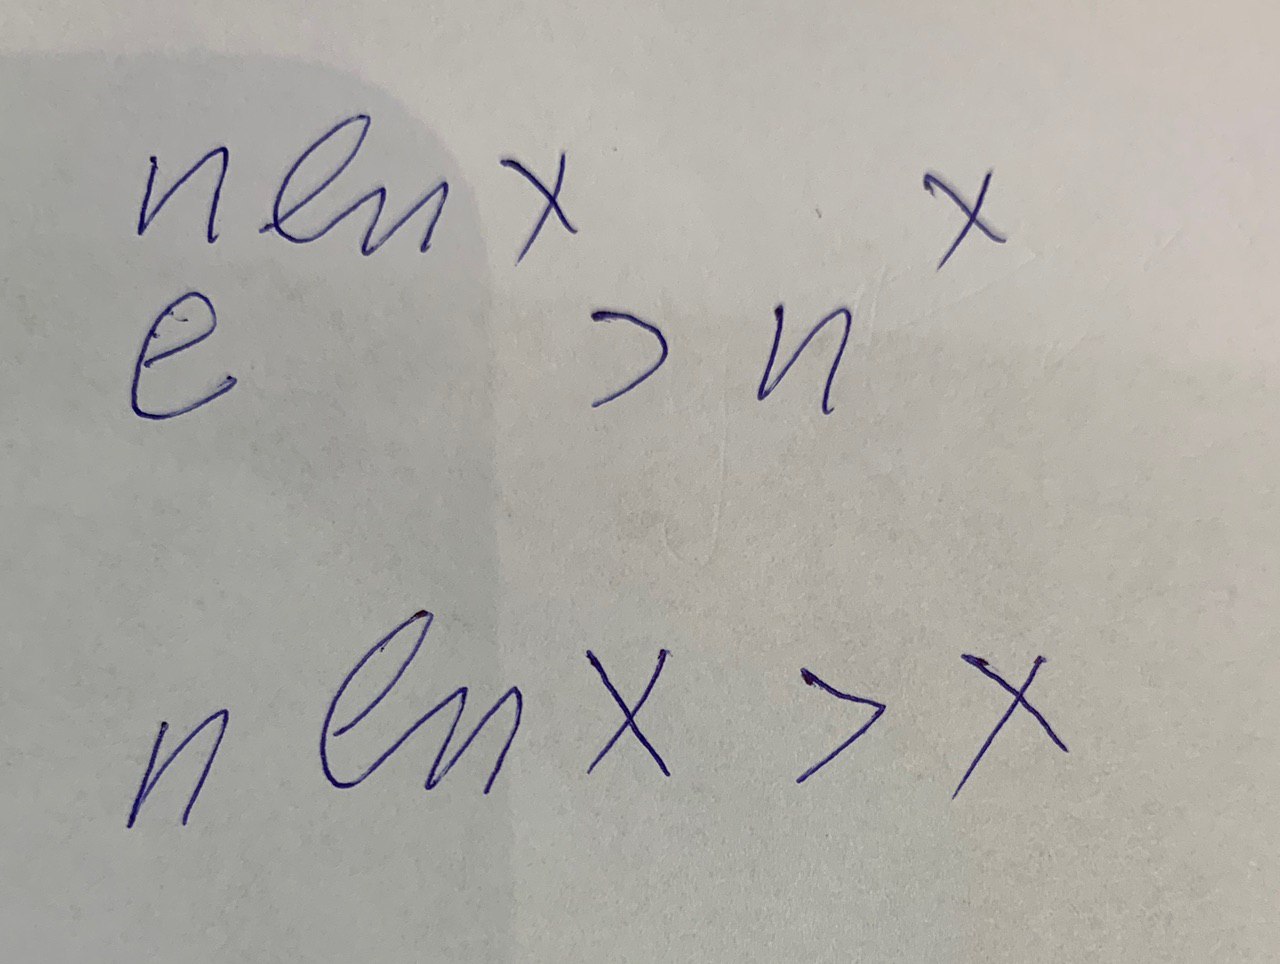 e^{n ln x} > n^x
n ln x > x